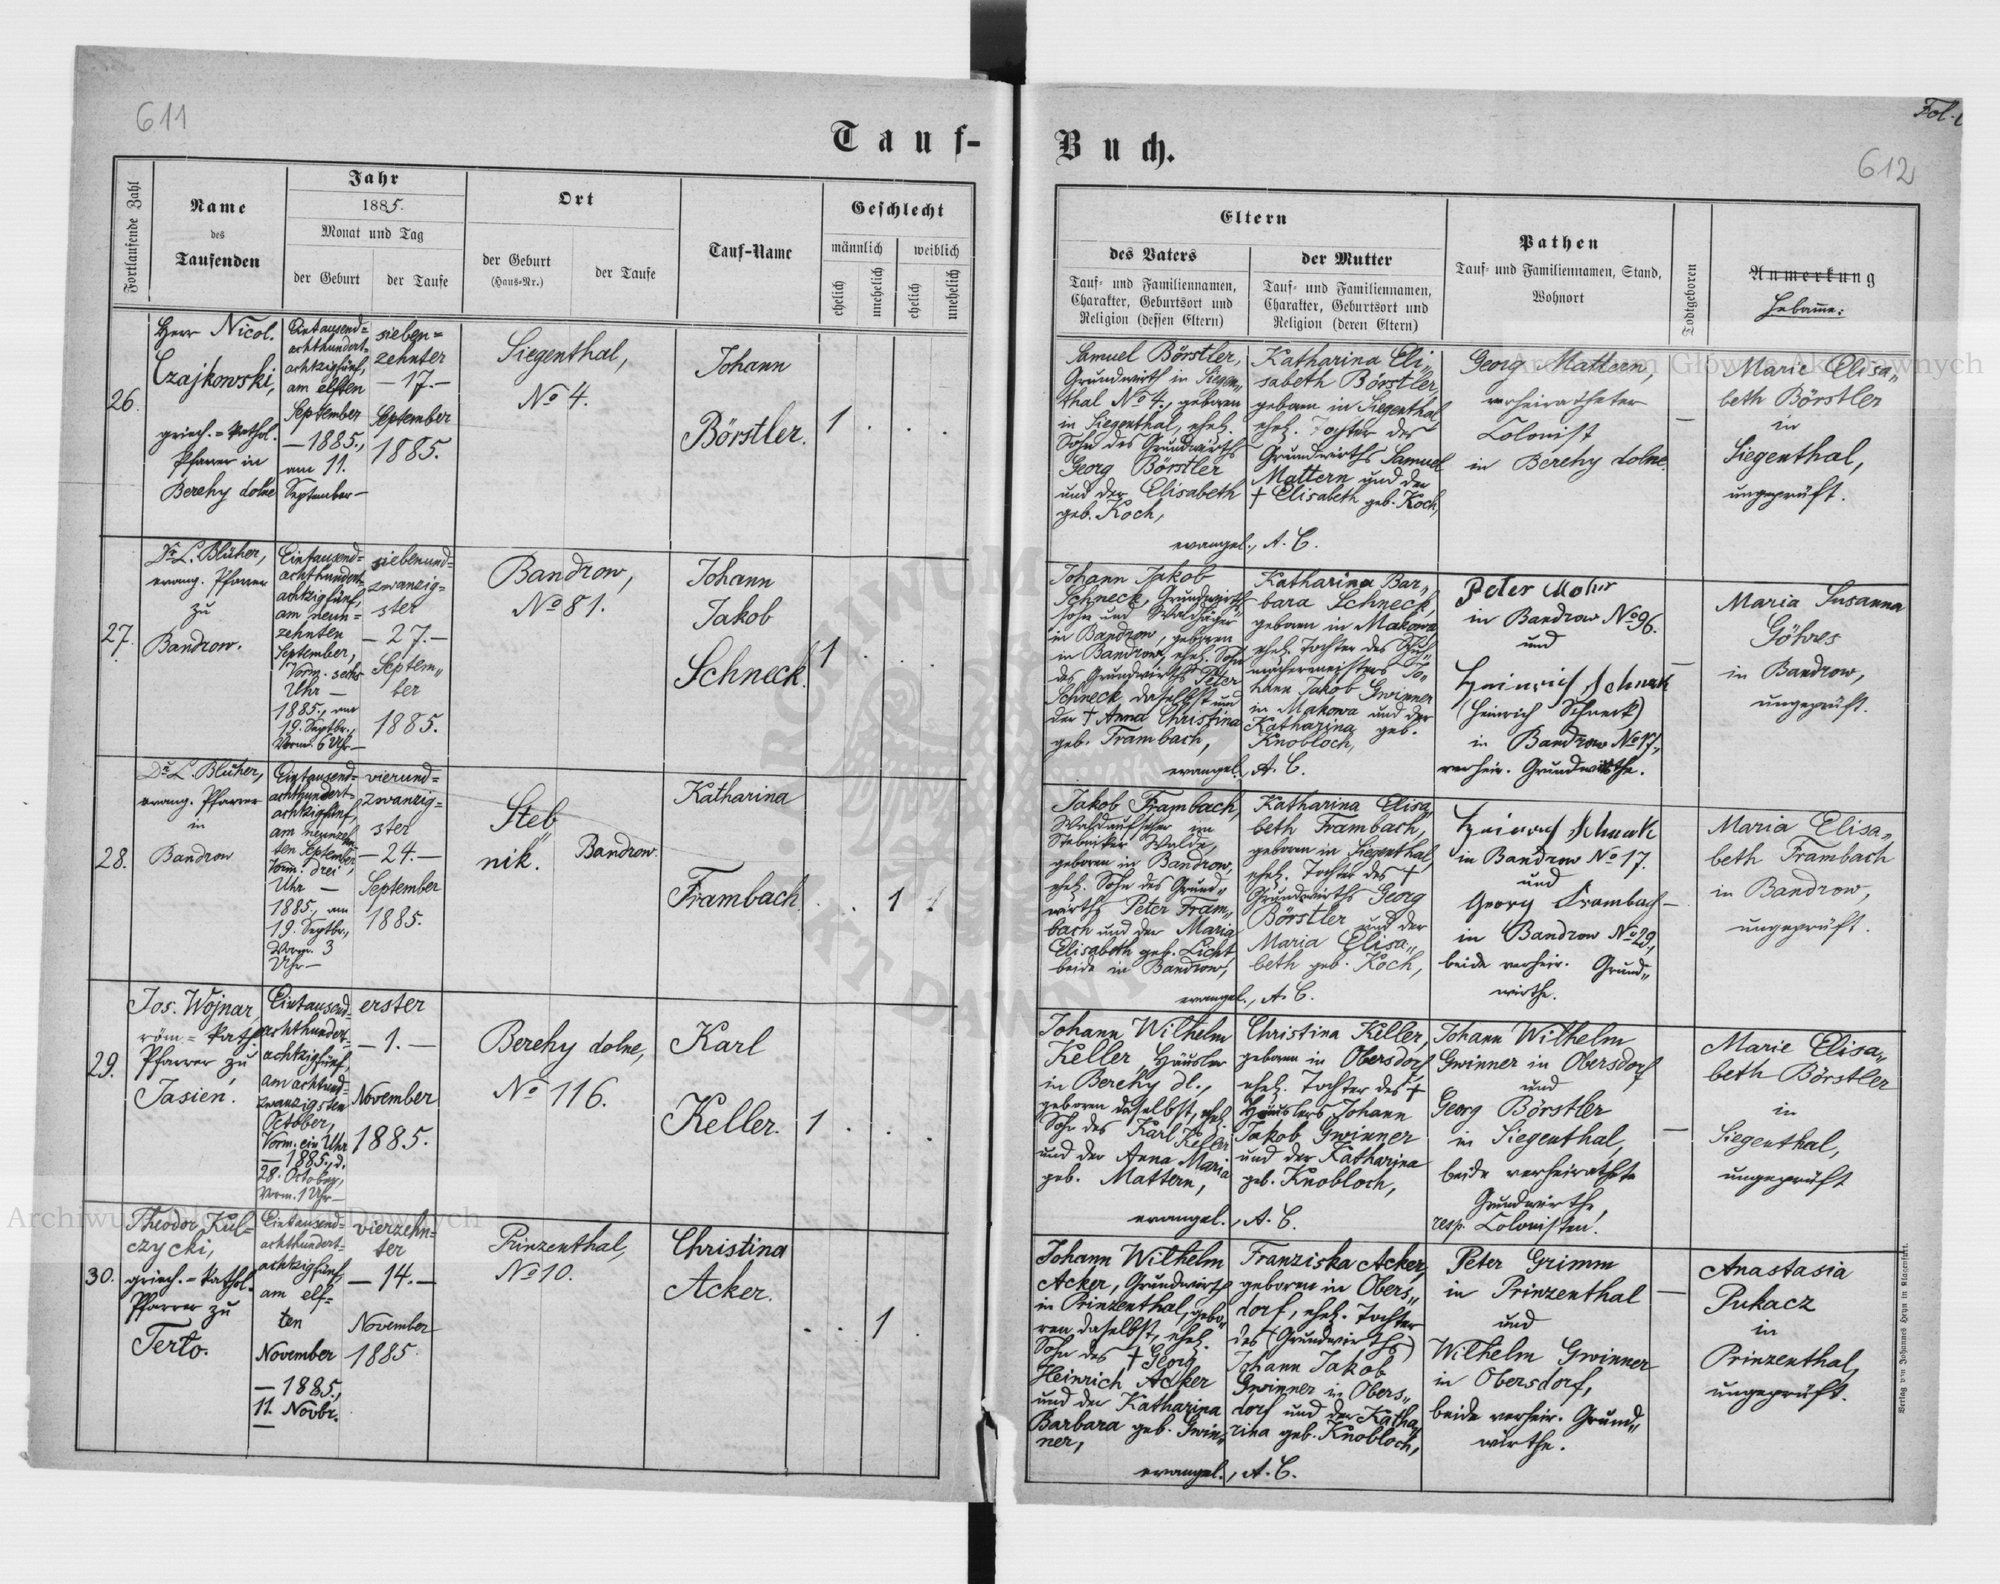 611
Tauf-
Fortlaufende Zahl
Name
des
Taufenden
Jahr
1885.
Monat und Tag
der Geburt
der Taufe
Ort
der Geburt
(Haus-Nr.)
der Taufe
Tauf-Name
Geschlecht
männlich
weiblich
ehelich
unehelich
ehelich
unehelich
26.
Herr Nicol.
Czajkowski,
griech.=kathol.
Pfarrer in
Berehy dolne
Eintausend=
achthundert=
achtzigfünf,
am elften
September
— 1885.,
am 11.
September —
sieben=
zehnter
— 17. —
September
1885.
Siegenthal,
No 4.
Johann
Börstler.
1 . . .
27.
Dr. L. Blüher,
evang. Pfarrer
zu
Bandrow.
Eintausend=
achthundert=
achtzigfünf,
am neun=
zehnten
September,
Vorm. sechs
Uhr —
1885., am
19. Septbr.,
Vorm. 6 Uhr —
siebenund=
zwanzig=
ster
— 27. —
Septem„
ber
1885.
Bandrow,
No 81.
Johann
Jakob
Schneck.
1 . . .
28.
Dr. L. Blüher,
evang. Pfarrer
in
Bandrow
Eintausend=
achthundert=
achtzigfünf,
am neunzehn=
ten September,
Vorm. drei
Uhr —
1885., am
19. Septbr.,
Vorm. 3
Uhr —
vierund=
zwanzig=
ster
— 24. —
September
1885.
Steb„
nik.
Bandrow.
Katharina
Frambach
. . 1 .
29.
Jos. Wojnar,
röm.=kath.
Pfarrer zu
Jasień.
Eintausend=
achthundert=
achtzigfünf,
am achtund=
zwanzigsten
October,
Vorm. ein Uhr
— 1885., d.
28. October,
Vorm. 1 Uhr —
erster
— 1. —
November
1885.
Berehy dolne,
No 116.
Karl
Keller.
1 . . .
30.
Theodor Kul=
czycki,
griech.=kathol.
Pfarrer zu
Terło.
Eintausend=
achthundert=
achtzigfünf,
am elf=
ten
November
— 1885.,
11. Novbr.
—
vierzehn=
ter
— 14. —
November
1885.
Prinzenthal,
No 10.
Christina
Acker.
. . 1 .
Buch.
Fol.
612
Eltern
des Vaters
Tauf- und Familiennamen,
Charakter, Geburtsort und
Religion (dessen Eltern)
der Mutter
Tauf- und Familiennamen,
Charakter, Geburtsort und
Religion (deren Eltern)
Pathen
Tauf- und Familiennamen, Stand,
Wohnort
Todtgeboren
Anmerkung
Hebamme:
Samuel Börstler,
Grundwirth in Siegen„
thal No 4., geboren
in Siegenthal, ehel.
Sohn des Grundwirths
Georg Börstler
und der Elisabeth
geb. Koch,
Katharina Eli„
sabeth Börstler,
geboren in Siegenthal
ehel. Tochter des
Grundwirths Samuel
Mattern und der
† Elisabeth geb. Koch,
evangel., A. C.
Georg Mattern,
verheiratheter
Colonist
in Berehy dolne.
—
Marie Elisa„
beth Börstler
in
Siegenthal,
ungeprüft.
Johann Jakob
Schneck, Grundwirths„
sohn und Waldhüter
in Bandrow, geboren
in Bandrow, ehel. Sohn
des Grundwirths Peter
Schneck daselbst und
der † Anna Christina
geb. Frambach,
Katharina Bar„
bara Schneck,
geboren in Makowa,
ehel. Tochter des Schuh„
machermeisters Jo„
hann Jakob Gwinner
in Makowa und der
Katharina geb.
Knobloch,
evangel., A. C.
Peter Mohr
in Bandrow No 96.
und
Heinrich Schneck
(Heinrich Schneck)
in Bandrow No 17.,
verheir. Grundwirthe.
—
Maria Susanna
Göhres
in Bandrow,
ungeprüft.
Jakob Frambach,
Waldaufseher im
Stebniker Walde,
geboren in Bandrow,
ehel. Sohn des Grund„
wirths Peter Fram„
bach und der Maria
Elisabeth geb. Licht,
beide in Bandrow,
Katharina Elisa„
beth Frambach,
geboren in Siegenthal,
ehel. Tochter des †
Grundwirths Georg
Börstler und der
Maria Elisa„
beth geb. Koch,
evangel., A. C.
Heinrich Schneck
in Bandrow No 17.
und
Georg Frambach
in Bandrow No 29.,
beide verheir. Grund„
wirthe.
—
Maria Elisa„
beth Frambach
in Bandrow,
ungeprüft.
Johann Wilhelm
Keller, Häusler
in Berehy dl.,
geboren daselbst, ehel.
Sohn des Karl Keller
und der Anna Maria
geb. Mattern,
Christina Keller,
geboren in Obersdorf,
ehel. Tochter des †
Häuslers Johann
Jakob Gwinner
und der Katharina
geb. Knobloch,
evangel., A. C.
Johann Wilhelm
Gwinner in Obersdorf
und
Georg Börstler
in Siegenthal,
beide verheirathete
Grundwirthe,
resp. Colonisten.
—
Marie Elisa„
beth Börstler
in
Siegenthal,
ungeprüft
Johann Wilhelm
Acker, Grundwirth
in Prinzenthal, gebo„
ren daselbst, ehel.
Sohn des † Georg
Heinrich Acker
und der Katharina
Barbara geb. Gwin„
ner,
Franziska Acker,
geboren in Obers„
dorf, ehel. Tochter
des Grundwirths
Johann Jakob
Gwinner in Obers„
dorf und der Katha„
rina geb. Knobloch,
evangel., A. C.
Peter Grimm
in Prinzenthal
und
Wilhelm Gwinner
in Obersdorf,
beide verheir. Grund„
wirthe.
—
Anastasia
Pukacz
in
Prinzenthal,
ungeprüft.
Verlag von Johannes Heyn in Klagenfurt.